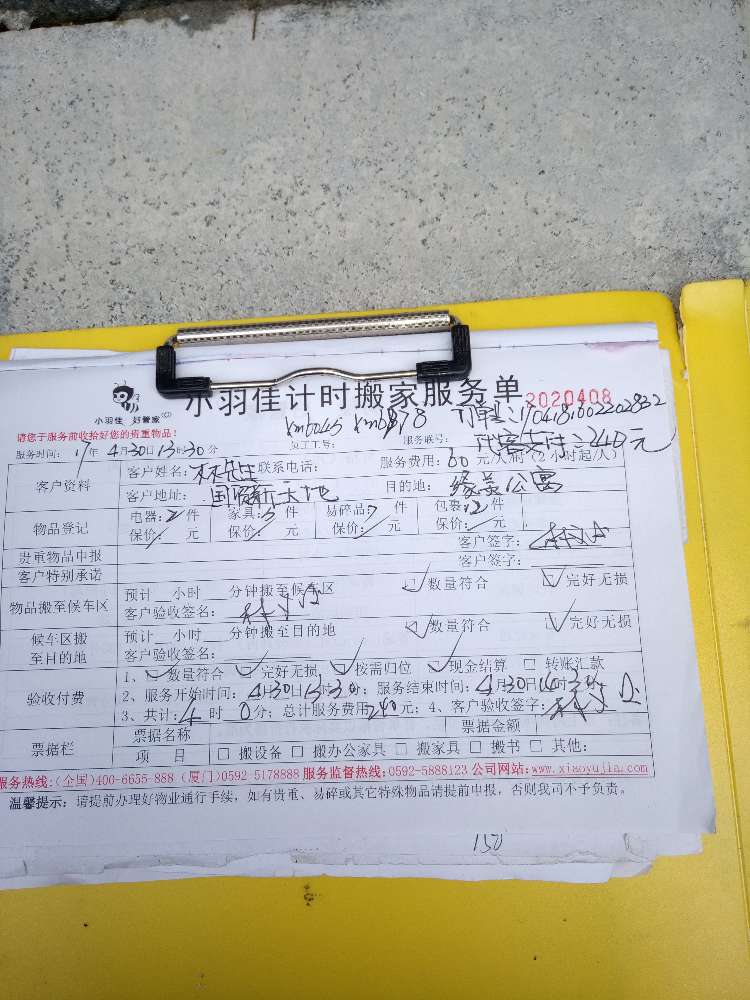 小羽佳计时搬家服务单 2020408
小羽佳 好管家
请您于服务前收拾好您的贵重物品!
xm6045 xm6878 订单号:1704181602202832
服务时间: 17年 4月30日13时30分 员工工号: 服务联号:
代客支付:240元
客户资料 客户姓名: 林先生 联系电话: 服务费用: 60 元/人/小时 (2小时起/人)
客户地址: 国贸新天地 目的地: 缘美公寓
物品登记 电器: 2 件 家具: 5 件 易碎品: 件 包裹: 12 件
保价: 元 保价: 元 保价: 元 保价: 元
贵重物品申报 客户签字:
客户特别承诺 客户签字:
物品搬至候车区 预计__小时__分钟搬至候车区 数量符合 完好无损
客户验收签名:
候车区搬至目的地 预计__小时__分钟搬至目的地 数量符合 完好无损
客户验收签名:
验收付费 1、 数量符合 完好无损 按需归位 现金结算 转账汇款
2、服务开始时间: 4月30日13时30分; 服务结束时间: 4月30日
3、共计: 4 时 0 分; 总计服务费用 240 元; 4、客户验收签字:
票据栏 票据名称 票据金额
项 目 搬设备 搬办公家具 搬家具 搬书 其他:
服务热线:(全国)400-6655-888 (厦门)0592-5178888 服务监督热线:0592-5888123 公司网站:www.xiaoyujia.com
温馨提示: 请提前办理好物业通行手续, 如有贵重、易碎或其它特殊物品请提前申报, 否则我司不予负责。
150